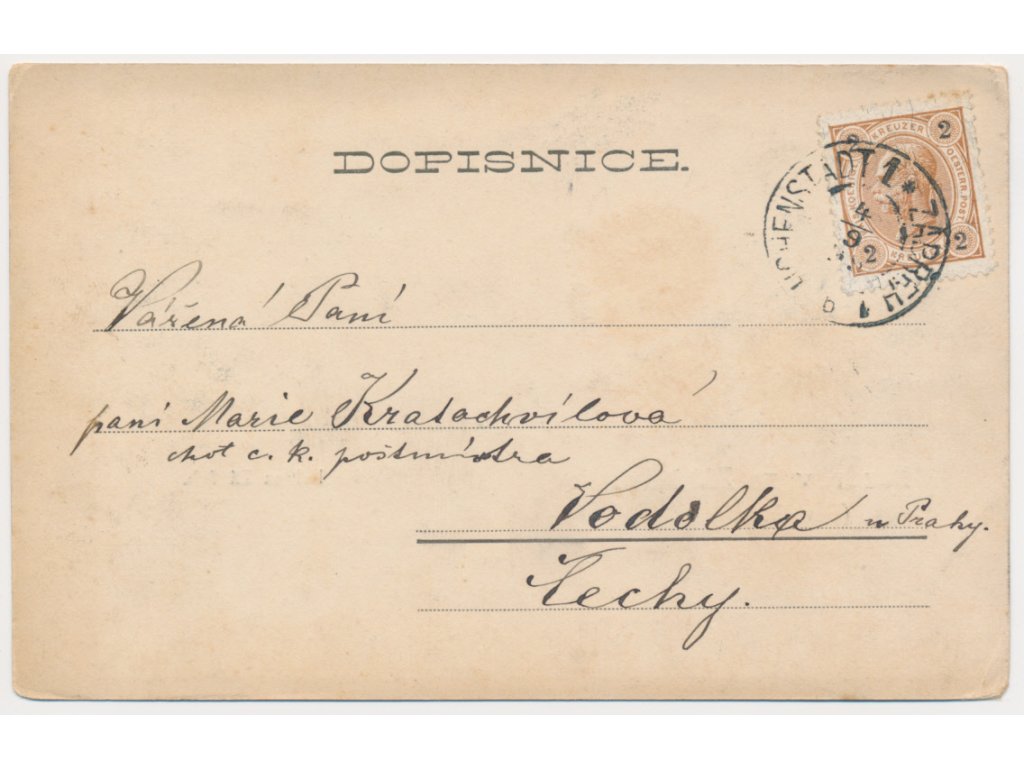 DOPISNICE.
2 KREUZER 2
OESTERR. POST
2 2
HOHENSTADT 1 * ZÁBŘEH 1
4/9
Vážená Paní
paní Marie Kratochvílová
chot c. k. poštmistra
Vodolka u Prahy.
Čechy.